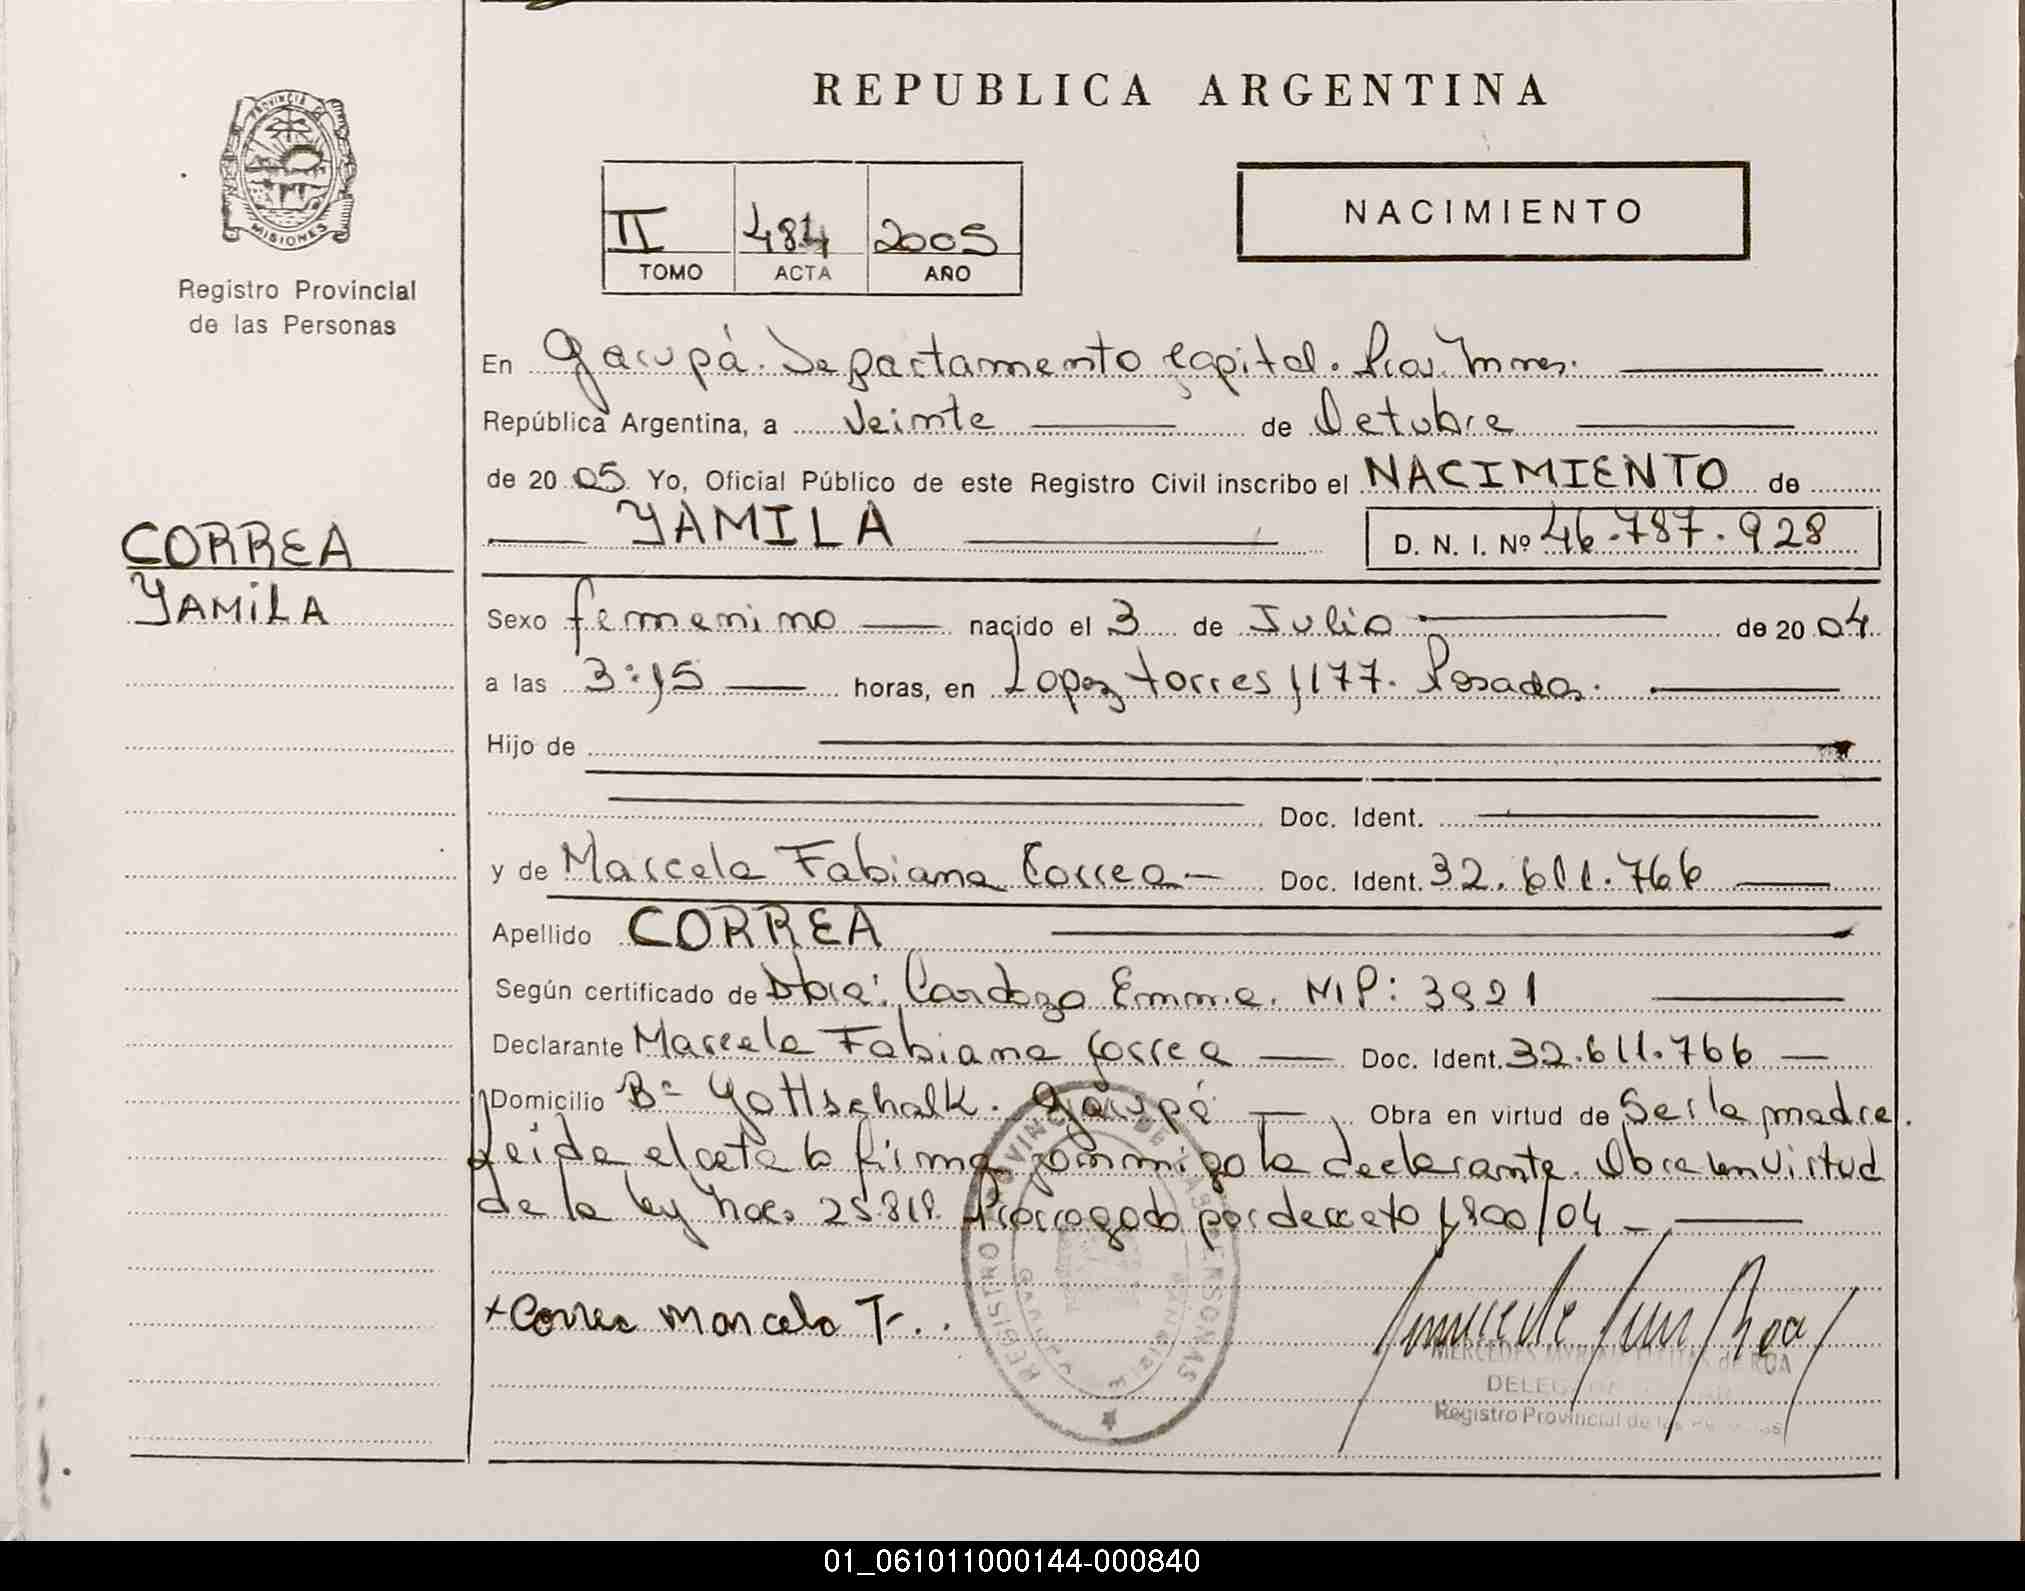 REPUBLICA ARGENTINA
PROVINCIA DE MISIONES
Registro Provincial
de las Personas
II 484 2005
TOMO ACTA AÑO
NACIMIENTO
En Garupá. Departamento Capital. Pcia. Mnes.
República Argentina, a Veinte de Octubre
de 2005 Yo, Oficial Público de este Registro Civil inscribo el NACIMIENTO de
YAMILA D. N. I. Nº 46.787.928
CORREA
YAMILA
Sexo femenino nacido el 3 de Julio de 2004
a las 3:15 horas, en Lopez torres 1177. Posadas.
Hijo de
Doc. Ident.
y de Marcela Fabiana Correa Doc. Ident. 32.611.766
Apellido CORREA
Según certificado de Obra. Cardozo Emma. MP: 3921
Declarante Marcela Fabiana Correa Doc. Ident. 32.611.766
Domicilio Bº Gottschalk. Garupá Obra en virtud de Ser la madre.
Leida el acta la firma conmigo la declarante. Obra en virtud
de la ley nac. 25818. Prorrogado por decreto 1800/04
+ Correa Marcela F..
REGISTRO PROVINCIAL DE LAS PERSONAS
GARUPA
MERCEDES de ROA
Registro Provincial de las Personas
01_061011000144-000840